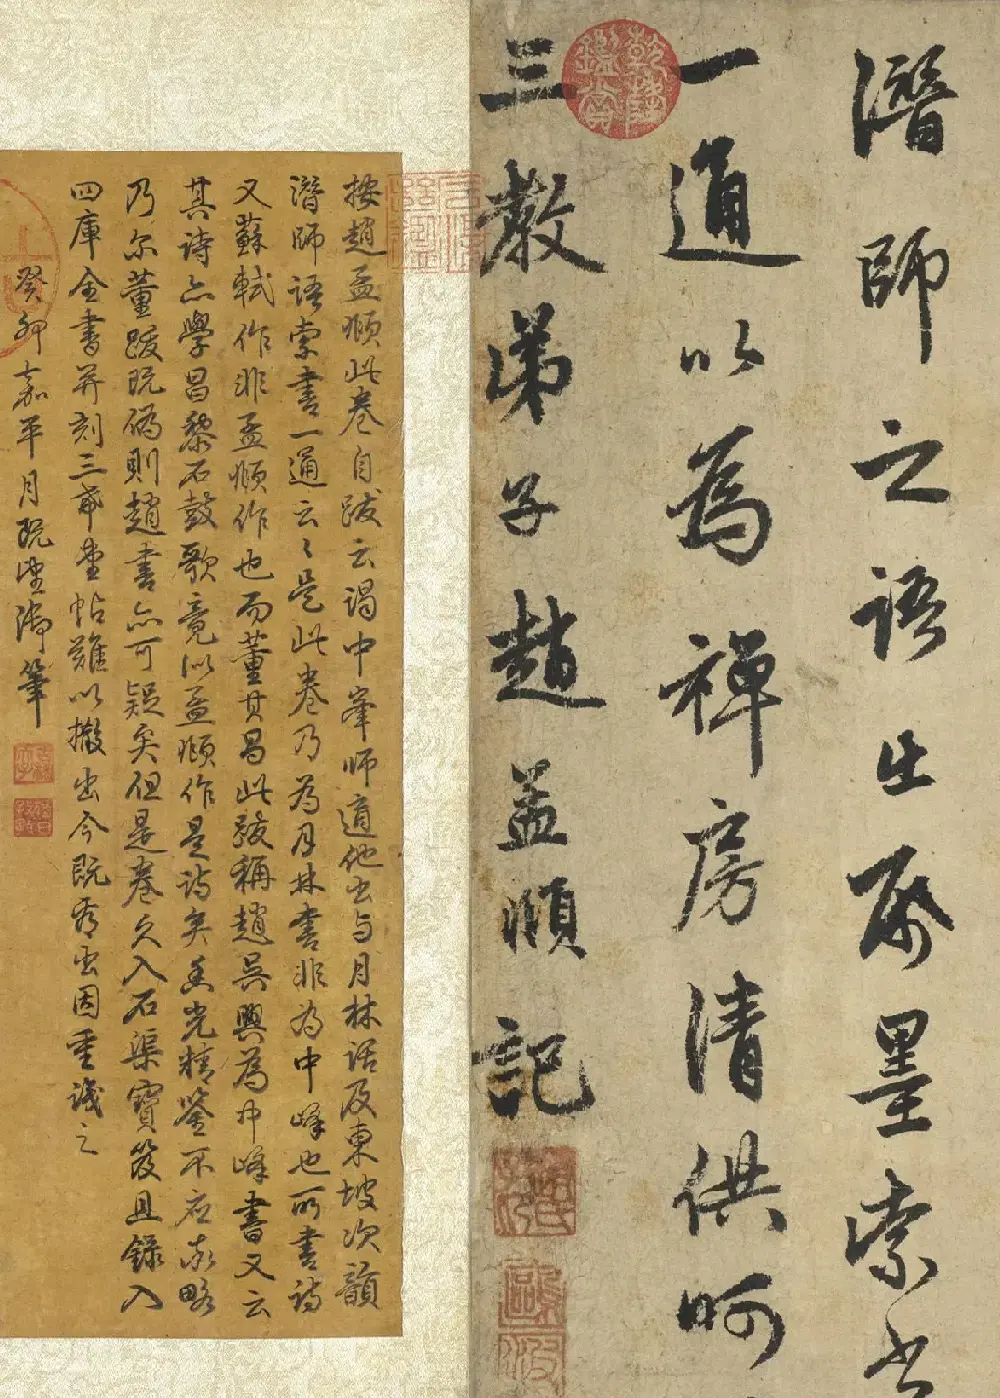 潛師之語出紙墨索書
一通以為禪房清供呵
三教弟子趙孟頫記
乾隆鑑賞
趙氏子昂
按趙孟頫此卷自跋云謁中峯師適他出與月林話及東坡次韻
潛師語索書一通云云是此卷乃為月林書非為中峰也所書詩
又蘇軾作非孟頫作也而董其昌此跋稱趙吳興為中峰書又云
其詩亦學昌黎石鼓歌竟似孟頫作是詩矣香光精鑒不應疎略
乃尔董跋既偽則趙書亦可疑矣但是卷久入石渠寶笈且錄入
四庫全書并刻三希堂帖難以撤出今既看出因重識之
癸卯嘉平月既望御筆